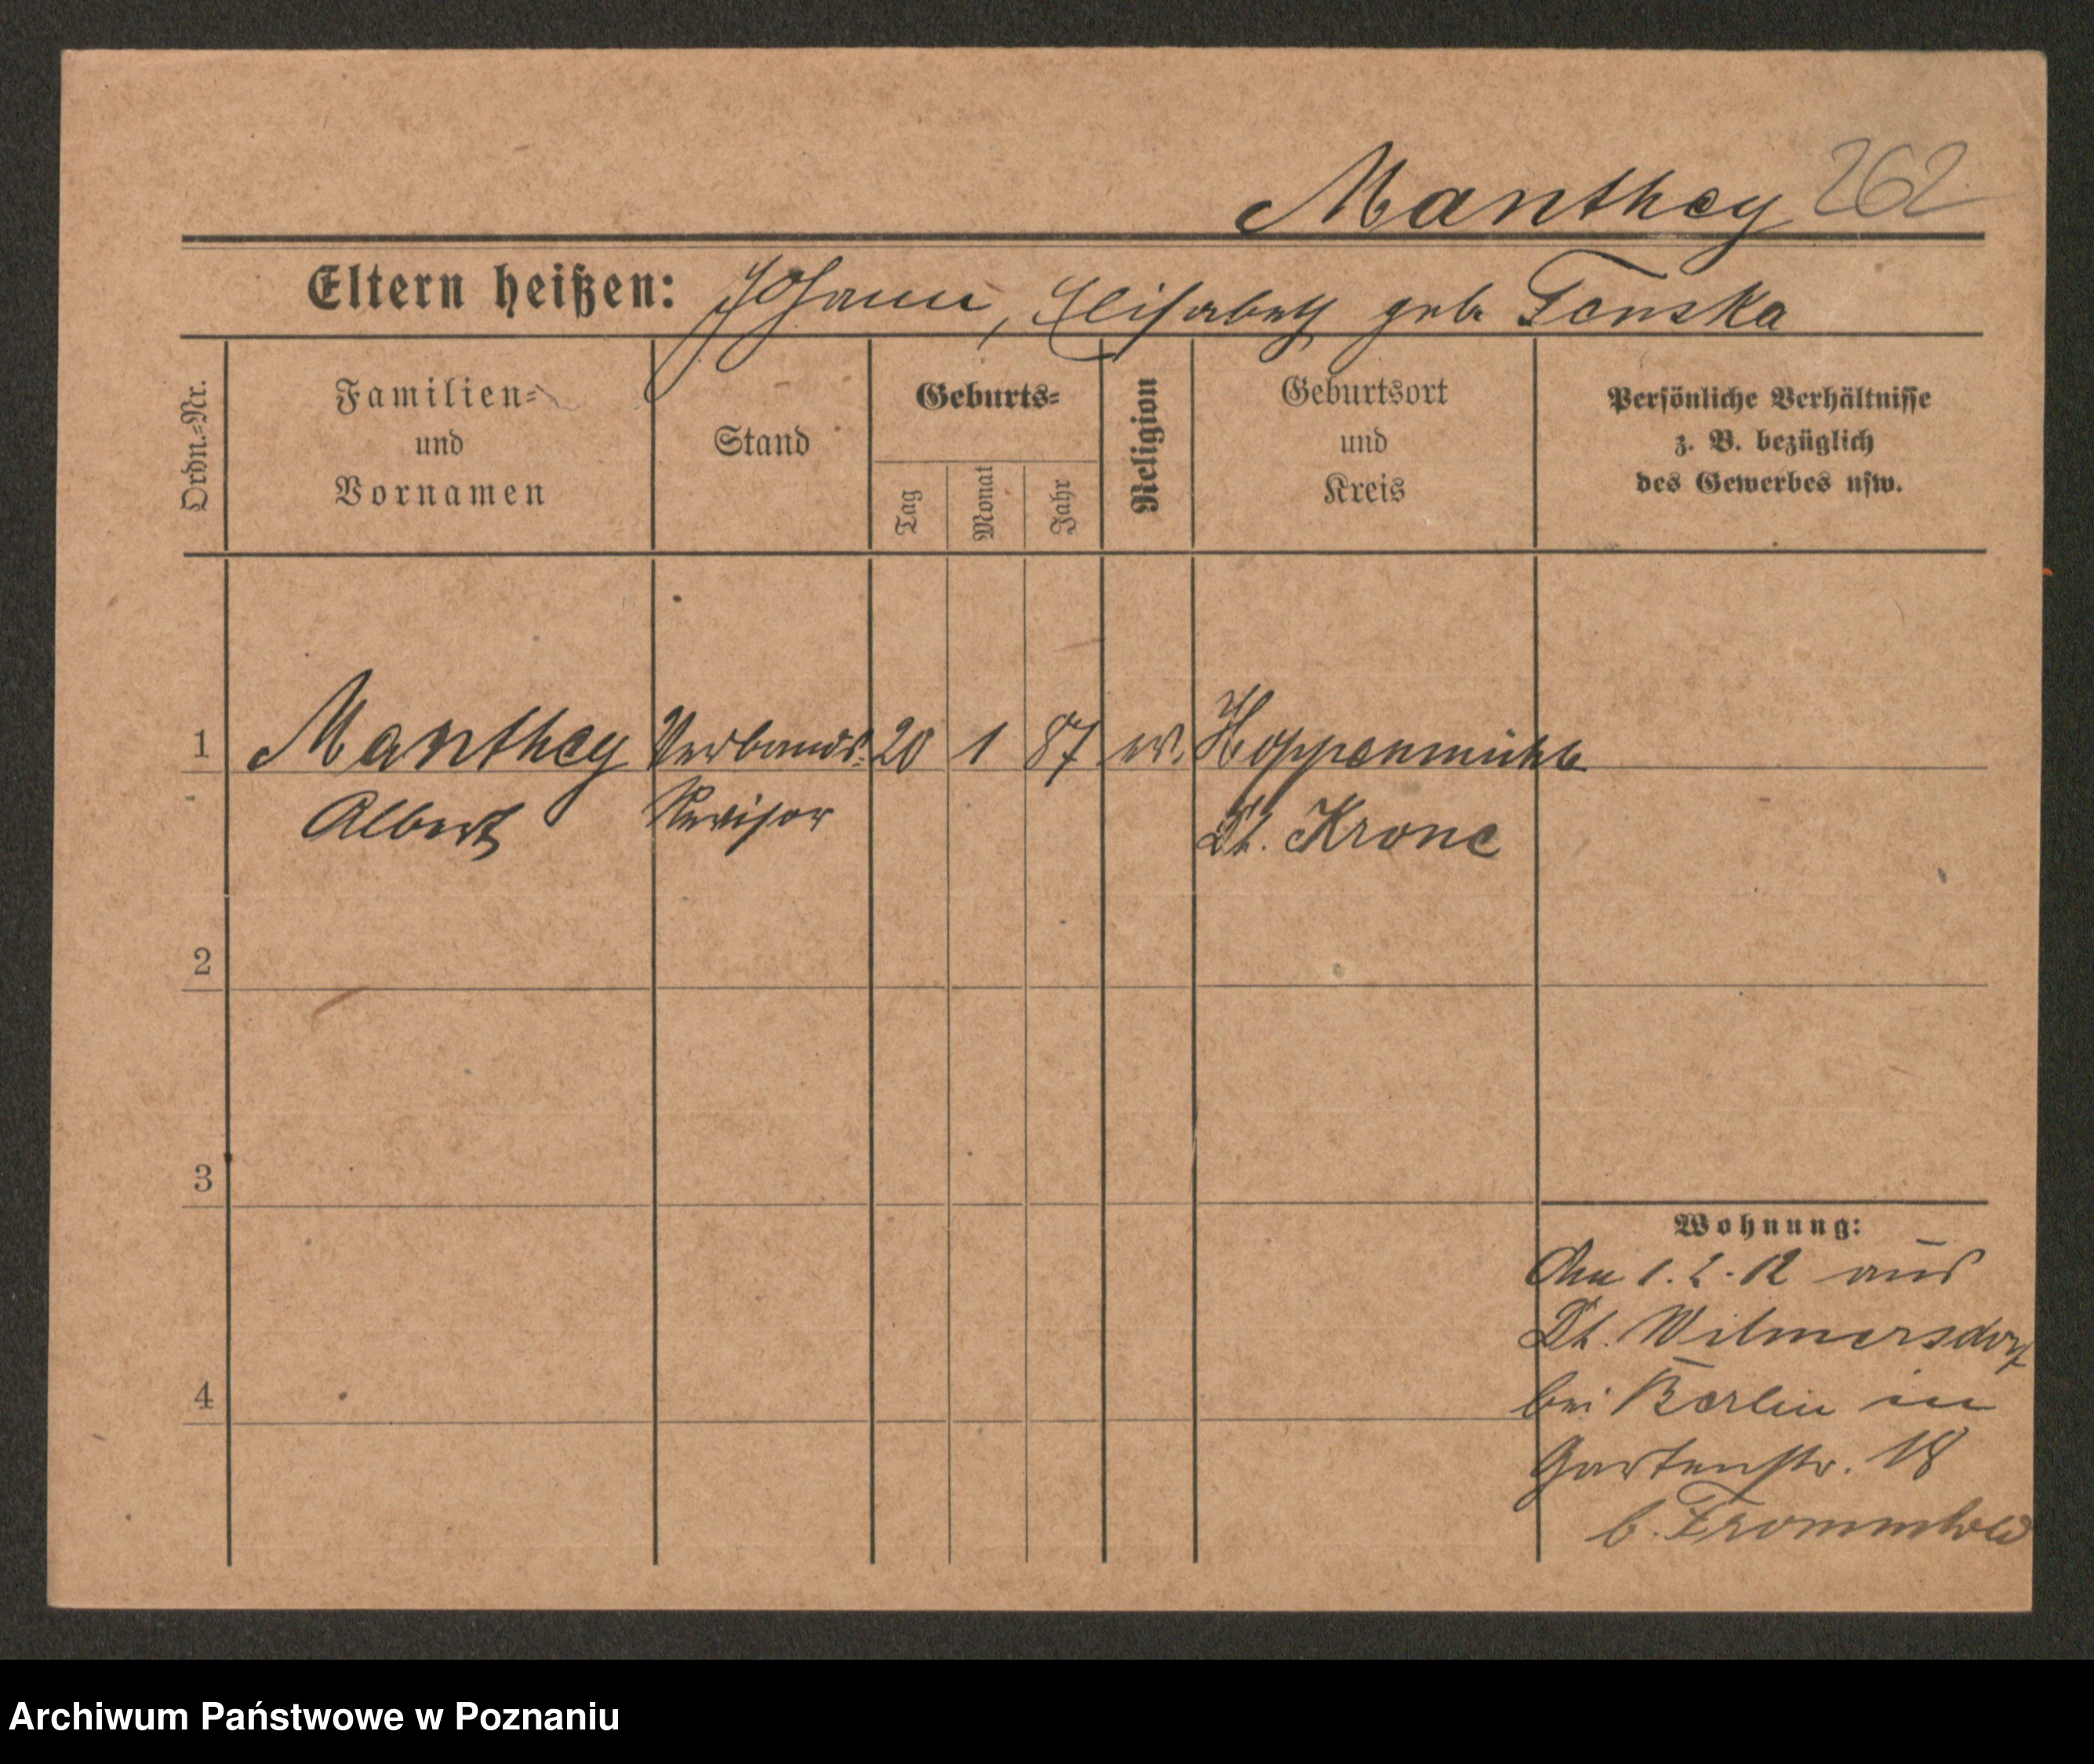 Manthey 262
Eltern heißen: Johann, Elisabeth geb. Tonska
Ordn.=Nr.
Familien=
und
Vornamen
Stand
Geburts=
Tag
Monat
Jahr
Religion
Geburtsort
und
Kreis
Persönliche Verhältnisse
z. B. bezüglich
des Gewerbes usw.
1 Manthey Verbands= 20 1 87 ev. Hoppenmühle
Albert Revisor Dt. Krone
2
3
4
Wohnung:
Am 1.2.12 aus
Dt. Wilmersdorf
bei Berlin in
Gartenstr. 18
b. Frommhold
Archiwum Państwowe w Poznaniu